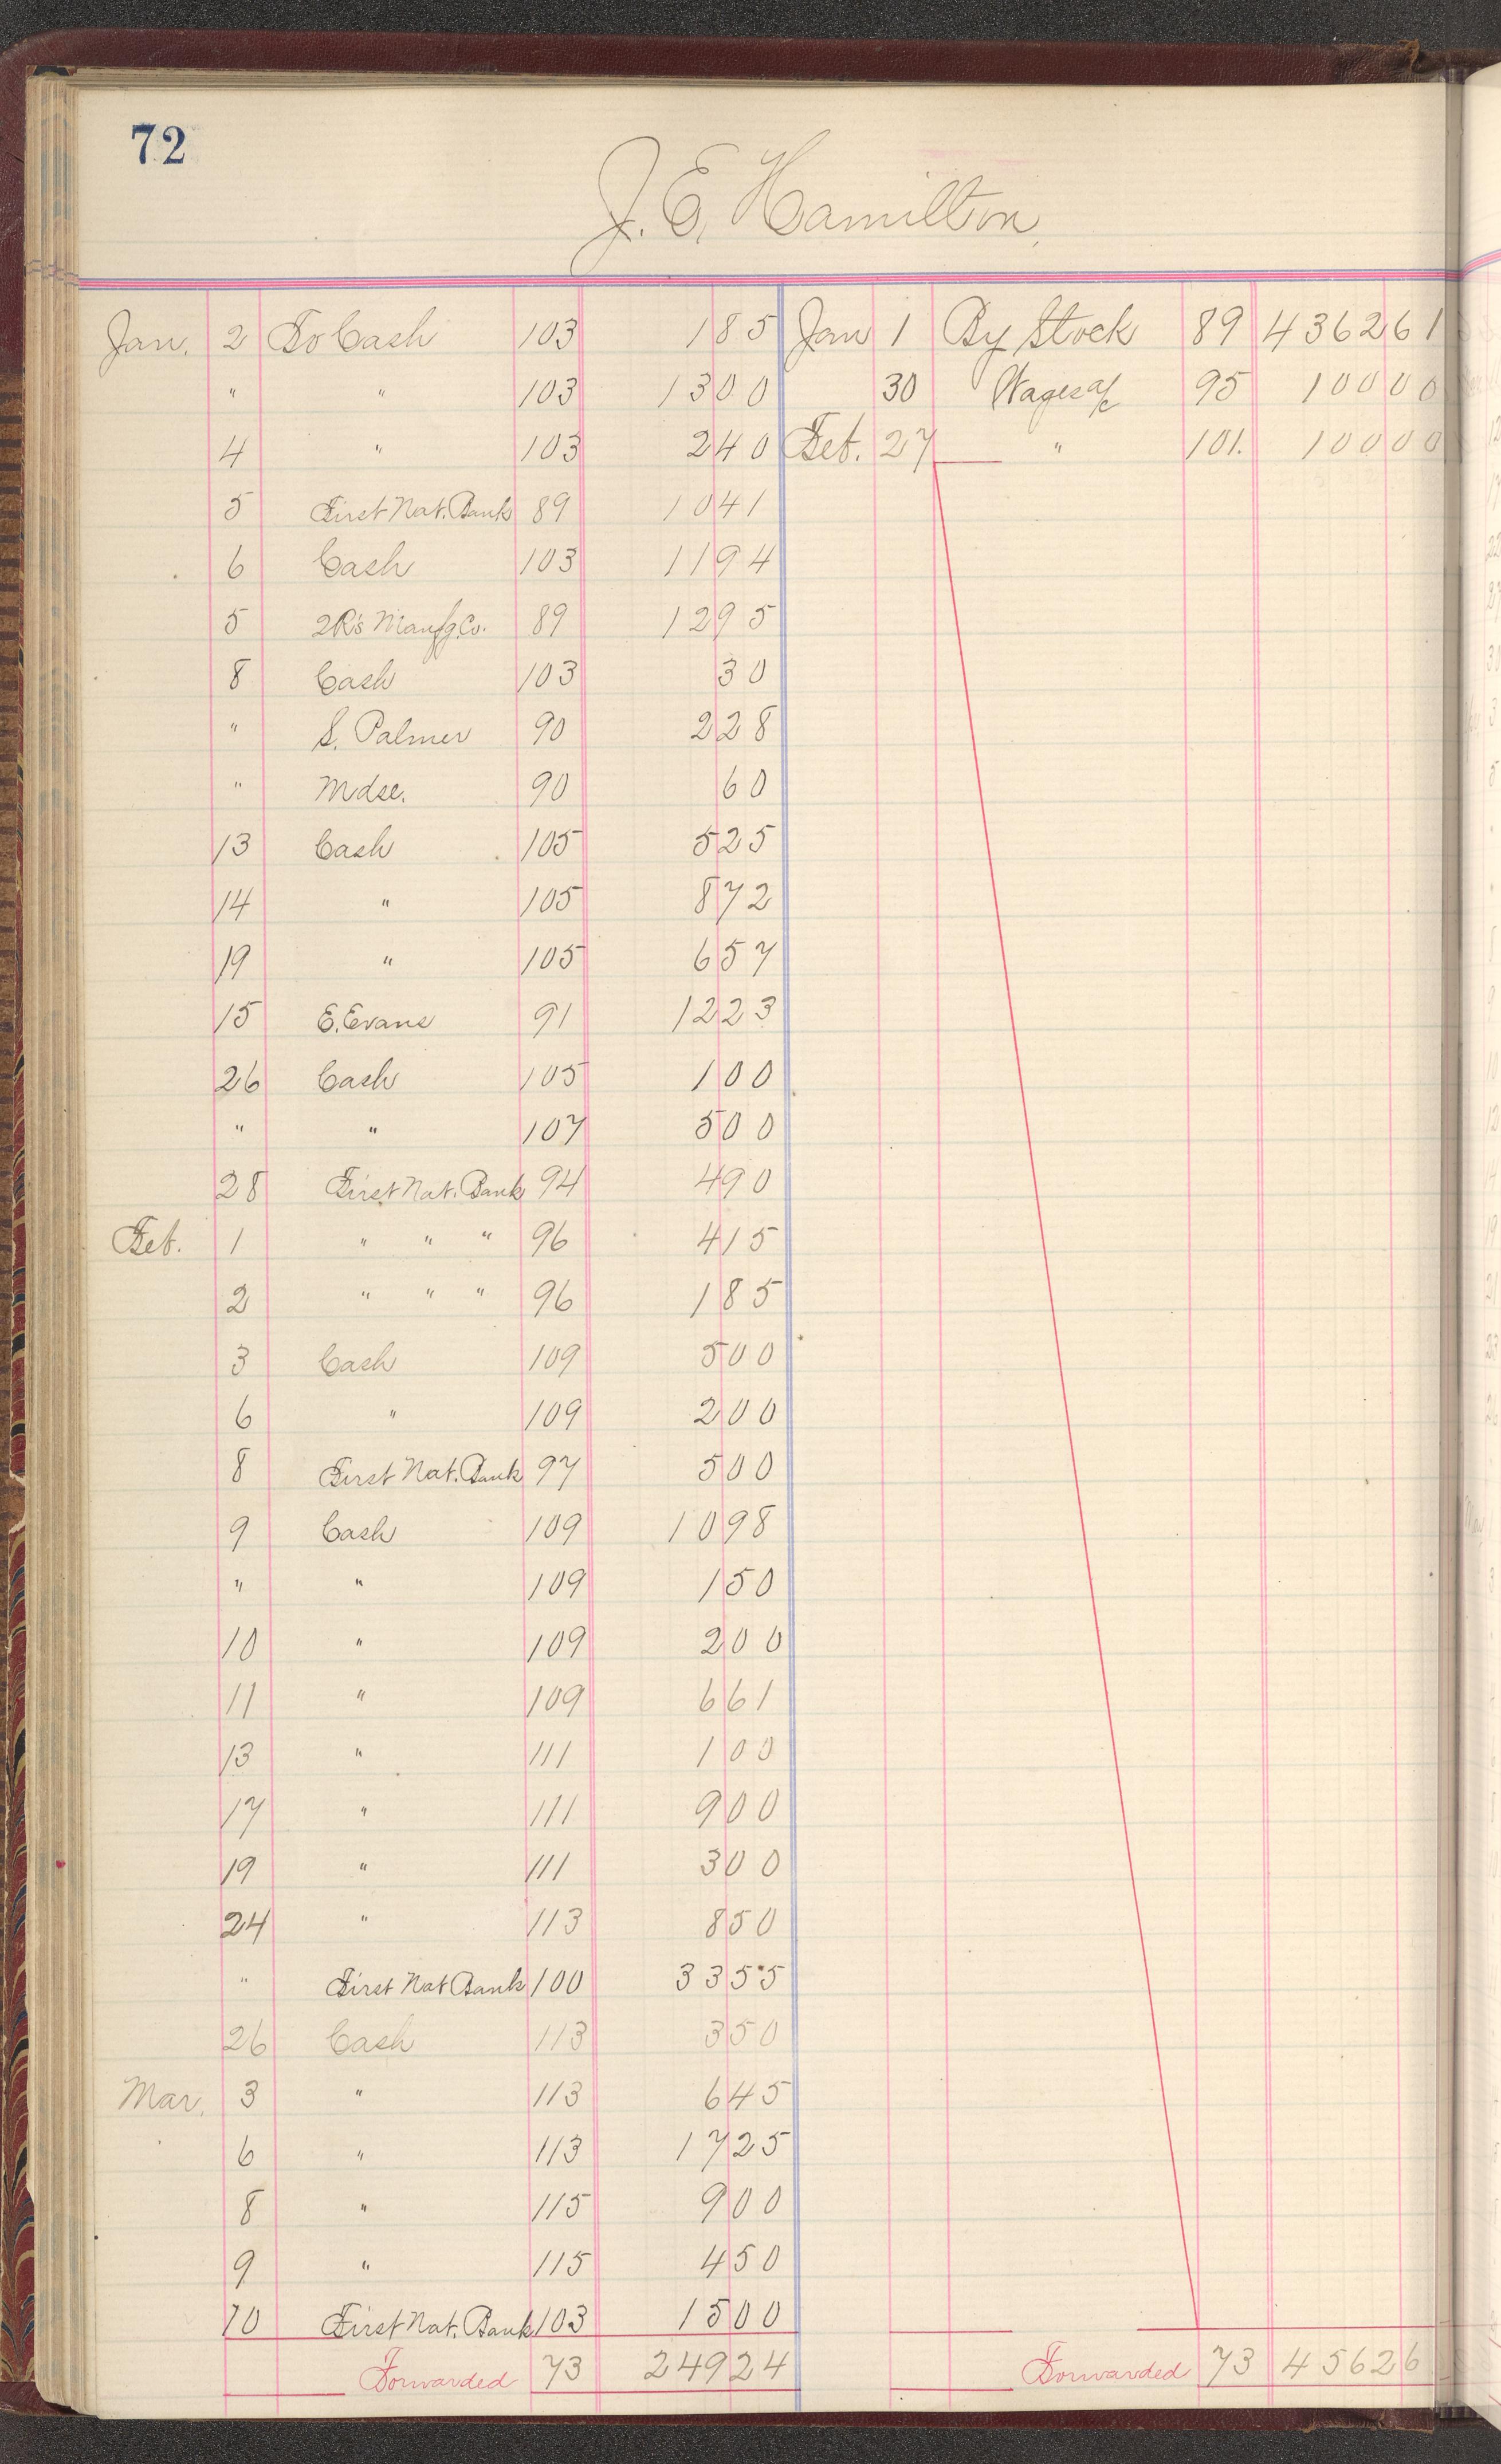 72
J. E. Hamilton.
Jan. 2 To Cash 103 1 85 Jan 1 By Stock 89 4362 61
" " 103 13 00 30 Wages a/c 95 100 00
4 " 103 2 40 Feb. 27 " 101. 100 00
5 First Nat. Bank 89 10 41
6 Cash 103 11 94
5 2R's Manfg. Co. 89 12 95
8 Cash 103 30
" S. Palmer 90 2 28
" Mdse. 90 60
13 Cash 105 5 25
14 " 105 8 72
19 " 105 6 57
15 E. Evans 91 12 23
26 Cash 105 1 00
" " 107 5 00
28 First Nat. Bank 94 4 90
Feb. 1 " " " 96 4 15
2 " " " 96 1 85
3 Cash 109 5 00
6 " 109 2 00
8 First Nat. Bank 97 5 00
9 Cash 109 10 98
" " 109 1 50
10 " 109 2 00
11 " 109 6 61
13 " 111 1 00
17 " 111 9 00
19 " 111 3 00
24 " 113 8 50
" First Nat Bank 100 33 55
26 Cash 113 3 50
Mar. 3 " 113 6 45
6 " 113 17 25
8 " 115 9 00
9 " 115 4 50
10 First Nat. Bank 103 15 00
Forwarded 73 249 24 Forwarded 73 4562 6